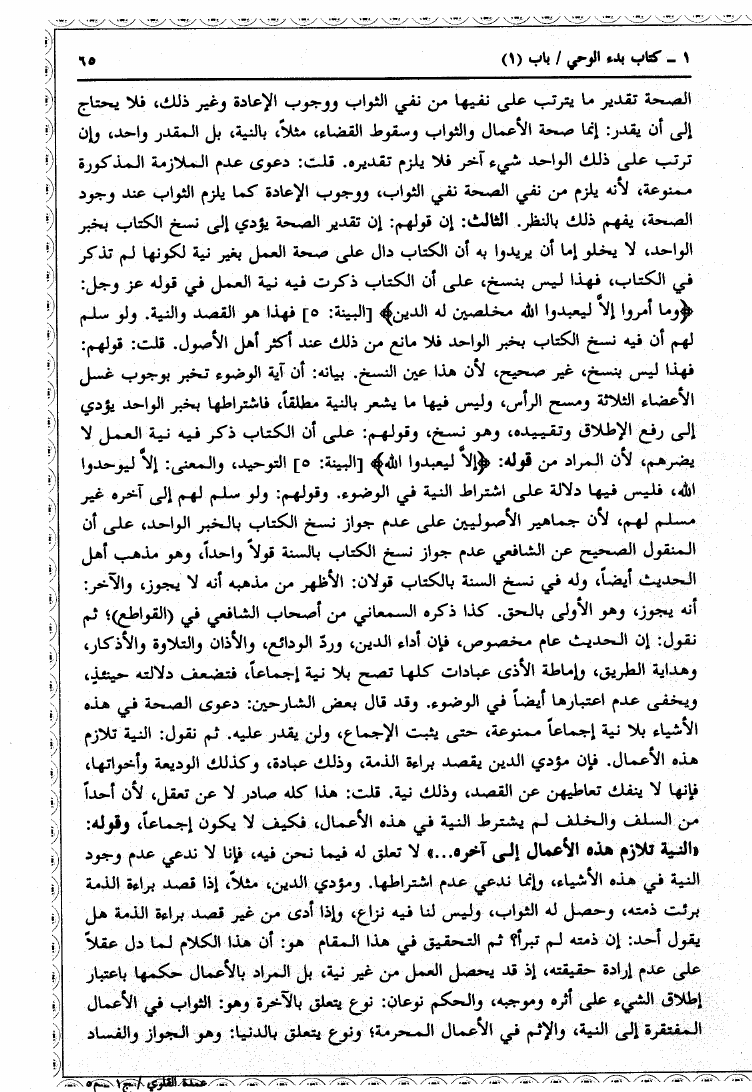 ١ ـ كتاب بدء الوحي / باب (١)
٦٥
الصحة تقدير ما يترتب على نفيها من نفي الثواب ووجوب الإعادة وغير ذلك، فلا يحتاج
إلى أن يقدر: إنما صحة الأعمال والثواب وسقوط القضاء، مثلاً، بالنية، بل المقدر واحد، وإن
ترتب على ذلك الواحد شيء آخر فلا يلزم تقديره. قلت: دعوى عدم الملازمة المذكورة
ممنوعة، لأنه يلزم من نفي الصحة نفي الثواب، ووجوب الإعادة كما يلزم الثواب عند وجود
الصحة، يفهم ذلك بالنظر. الثالث: إن قولهم: إن تقدير الصحة يؤدي إلى نسخ الكتاب بخبر
الواحد، لا يخلو إما أن يريدوا به أن الكتاب دال على صحة العمل بغير نية لكونها لم تذكر
في الكتاب، فهذا ليس بنسخ، على أن الكتاب ذكرت فيه نية العمل في قوله عز وجل:
﴿وما أمروا إلاَّ ليعبدوا الله مخلصين له الدين﴾ [البينة: ٥] فهذا هو القصد والنية. ولو سلم
لهم أن فيه نسخ الكتاب بخبر الواحد فلا مانع من ذلك عند أكثر أهل الأصول. قلت: قولهم:
فهذا ليس بنسخ، غير صحيح، لأن هذا عين النسخ. بيانه: أن آية الوضوء تخبر بوجوب غسل
الأعضاء الثلاثة ومسح الرأس، وليس فيها ما يشعر بالنية مطلقاً، فاشتراطها بخبر الواحد يؤدي
إلى رفع الإطلاق وتقييده، وهو نسخ، وقولهم: على أن الكتاب ذكر فيه نية العمل لا
يضرهم، لأن المراد من قوله: ﴿إلاَّ ليعبدوا الله﴾ [البينة: ٥] التوحيد، والمعنى: إلاَّ ليوحدوا
الله، فليس فيها دلالة على اشتراط النية في الوضوء. وقولهم: ولو سلم لهم إلى آخره غير
مسلم لهم، لأن جماهير الأصوليين على عدم جواز نسخ الكتاب بالخبر الواحد، على أن
المنقول الصحيح عن الشافعي عدم جواز نسخ الكتاب بالسنة قولاً واحداً، وهو مذهب أهل
الحديث أيضاً، وله في نسخ السنة بالكتاب قولان: الأظهر من مذهبه أنه لا يجوز، والآخر:
أنه يجوز، وهو الأولى بالحق. كذا ذكره السمعاني من أصحاب الشافعي في (القواطع)؛ ثم
نقول: إن الحديث عام مخصوص، فإن أداء الدين، وردّ الودائع، والأذان والتلاوة والأذكار،
وهداية الطريق، وإماطة الأذى عبادات كلها تصح بلا نية إجماعاً، فتضعف دلالته حينئذٍ،
ويخفى عدم اعتبارها أيضاً في الوضوء. وقد قال بعض الشارحين: دعوى الصحة في هذه
الأشياء بلا نية إجماعاً ممنوعة، حتى يثبت الإجماع، ولن يقدر عليه. ثم نقول: النية تلازم
هذه الأعمال. فإن مؤدي الدين يقصد براءة الذمة، وذلك عبادة، وكذلك الوديعة وأخواتها،
فإنها لا ينفك تعاطيهن عن القصد، وذلك نية. قلت: هذا كله صادر لا عن تعقل، لأن أحداً
من السلف والخلف لم يشترط النية في هذه الأعمال، فكيف لا يكون إجماعاً، وقوله:
«النية تلازم هذه الأعمال إلى آخره...» لا تعلق له فيما نحن فيه، فإنا لا ندعي عدم وجود
النية في هذه الأشياء، وإنما ندعي عدم اشتراطها. ومؤدي الدين، مثلاً، إذا قصد براءة الذمة
برئت ذمته، وحصل له الثواب، وليس لنا فيه نزاع، وإذا أدى من غير قصد براءة الذمة هل
يقول أحد: إن ذمته لم تبرأ؟ ثم التحقيق في هذا المقام هو: أن هذا الكلام لما دل عقلاً
على عدم إرادة حقيقته، إذ قد يحصل العمل من غير نية، بل المراد بالأعمال حكمها باعتبار
إطلاق الشيء على أثره وموجبه، والحكم نوعان: نوع يتعلق بالآخرة وهو: الثواب في الأعمال
المفتقرة إلى النية، والإثم في الأعمال المحرمة؛ ونوع يتعلق بالدنيا: وهو الجواز والفساد
عمدة القاري / ج١ ـ م٥